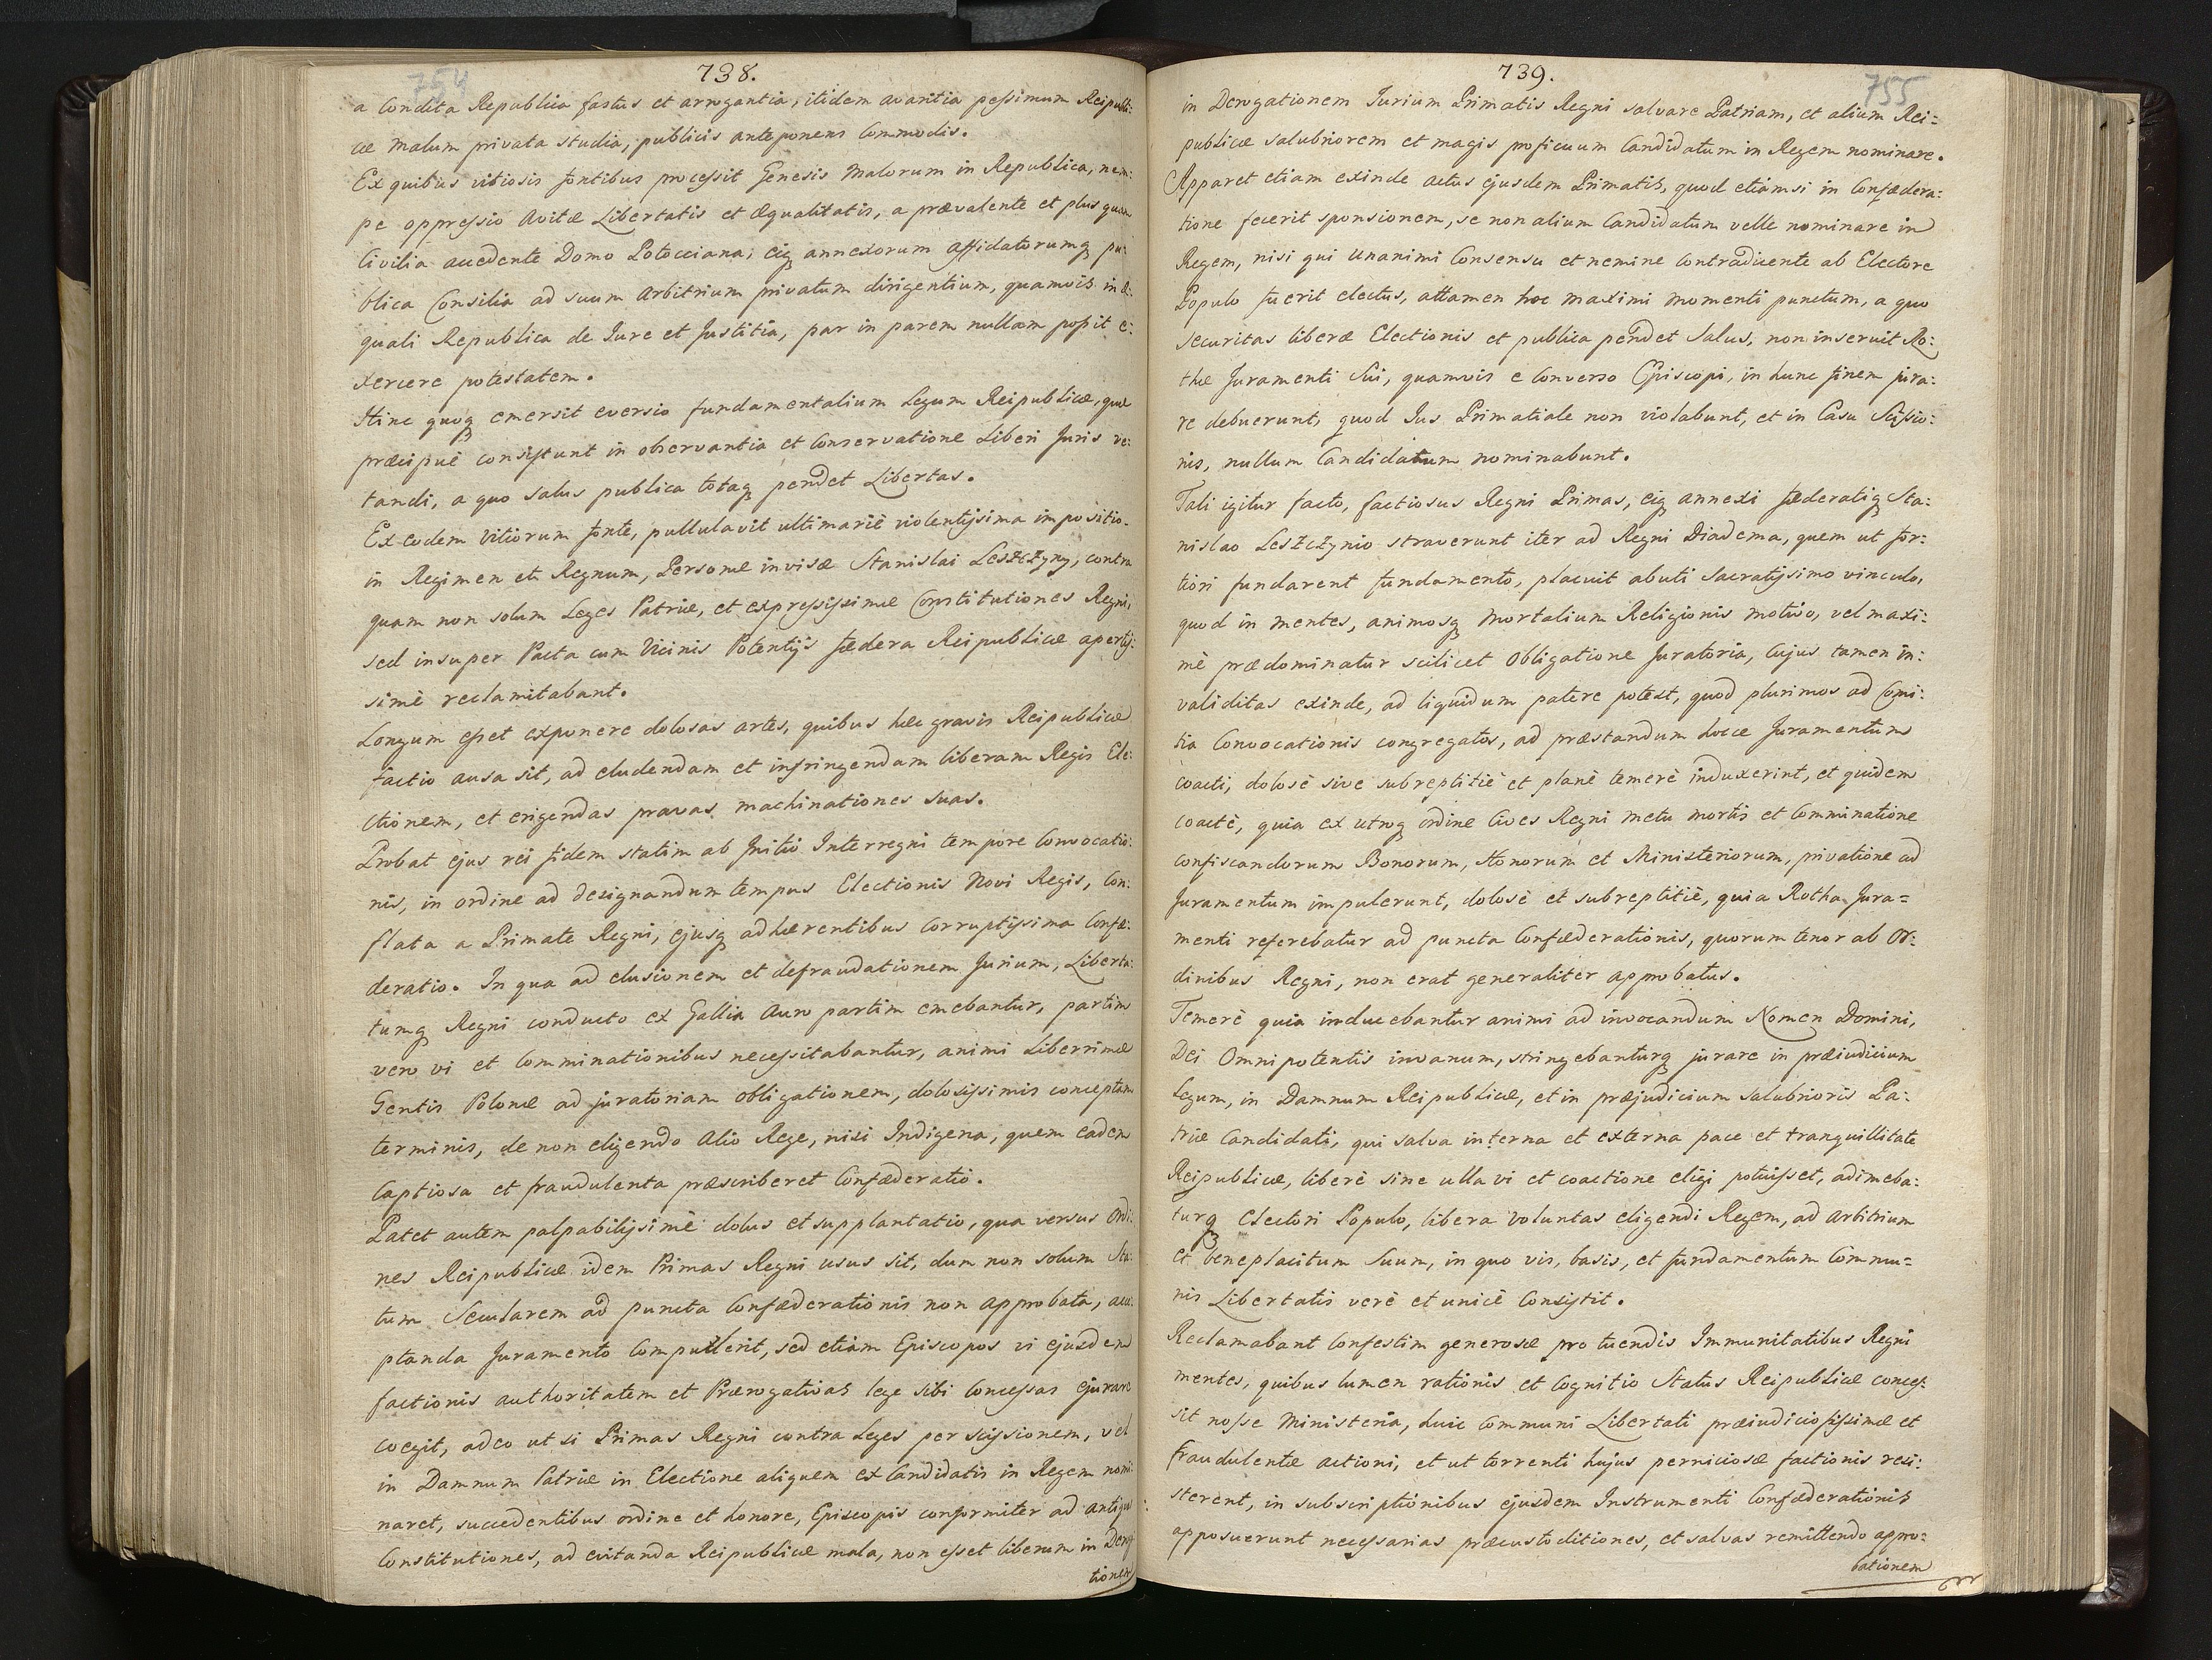 754
738.
a Condita Republica fastus et arrogantia, itidem avaritia pessimum Reipubli:
cæ malum privata studia, publicis anteponens Commodis.
Ex quibus vitiosis fontibus processit Genesis Malorum in Republica, nem:
pe oppressio Avitæ Libertatis et Æqualitatis, a prævalente et plus quam
Civilia audente Domo Potocciana, eiq annexorum affidatorumq pu:
blica Consilia ad suum Arbitrium privatum dirigentium, quamvis in æ:
quali Republica de Jure et Justitia, par in parem nullam possit e:
xercere potestatem.
Hinc quoq emersit eversio fundamentalium Legum Reipublicæ, quæ
præcipuè consistunt in observantia et Conservatione Liberi Juris ve:
tandi, a quo salus publica totaq pendet Libertas.
Ex eodem Vitiorum fonte, pullulavit ultimariè violentissima impositio
in Regimen et Regnum, Personæ invisæ Stanislai Leszczyny, contra
quam non solum Leges Patriæ, et expressissimæ Constitutiones Regni,
sed insuper Pacta cum Vicinis Potentijs fædera Reipublicæ apertis:
simè reclamitabant.
Longum esset exponere dolosas artes, quibus hæc gravis Reipublicæ
factio ausa sit, ad eludendam et infringendam liberam Regis Ele:
ctionem, et erigendas pravas machinationes suas.
Probat ejus rei fidem statim ab Initio Interregni tempore Convocatio:
nis, in ordine ad designandum tempus Electionis Novi Regis, Con:
flata a Primate Regni, ejusq adhærentibus Corruptissima Confæ:
deratio. In qua ad elusionem et defraudationem Jurium, Liberta:
tumq Regni conducto ex Gallia Auro partim emebantur, partim
vero vi et Comminationibus necessitabantur, animi Liberrimæ
Gentis Polonæ ad juratoriam obligationem, dolosissimis conceptam
terminis, de non eligendo Alio Rege, nisi Indigena, quem eadem
Captiosa et fraudulenta præscriberet Confæderatio.
Patet autem palpabilissimè dolus et supplantatio, qua versus Ordi:
nes Reipublicæ idem Primas Regni usus sit, dum non solum Sta:
tum Secularem ad puncta Confæderationis non approbata, acce:
ptanda Juramento Compullerit, sed etiam Episcopos vi ejusdem
factionis authoritatem et Prærogativas lege sibi Concessas ejurare
coegit, adeo ut si Primas Regni contra Leges per scissionem, vel
in Damnum Patriæ in Electione aliquem ex Candidatis in Regem nomi:
naret, succedentibus ordine et honore, Episcopis conformiter ad antiquas
Constitutiones, ad evitanda Reipublicæ mala, non esset liberum in Deroga
tionem
755
739.
in Derogationem Jurium Primatis Regni salvare Patriam, et alium Rei=
publicæ salubriorem et magis proficuum Candidatum in Regem nominare.
Apparet etiam exinde actus ejusdem Primatis, quod etiamsi in Confædera:
tione fecerit sponsionem, se non alium Candidatum velle nominare in
Regem, nisi qui Unanimi Consensu et nemine Contradicente ab Electore
Populo fuerit electus, attamen hoc maximi momenti punctum, a quo
securitas liberæ Electionis et publica pendet Salus, non inseruit Ro:
thæ Juramenti Sui, quamvis e Converso Episcopi, in hunc finem jura:
re debuerunt, quod Jus Primatiale non violabunt, et in Casu Scissio:
nis, nullum Candidatum nominabunt.
Tali igitur facto, factiosus Regni Primas, eiq annexi fæderatiq Sta:
nislao Leszczynio straverunt iter ad Regni Diadema, quem ut for:
tiori fundarent fundamento, placuit abuti Sacratissimo vinculo,
quod in mentes, animosq Mortalium Religionis motivo, vel maxi:
mè prædominatur scilicet Obligatione Juratoria, Cujus tamen in:
validitas exinde, ad liquidum patere potest, quod plurimos ad Comi:
tia Convocationis congregatos, ad præstandum hocce Juramentum
coacti, dolosè sive subreptitiè et planè temerè induxerint, et quidem
coactè, quia ex utroq ordine Cives Regni metu mortis et Comminatione
confiscandorum Bonorum, Honorum et Ministeriorum, privatione ad
Juramentum impulerunt, dolosè et subreptitiè, quia Rotha Jura=
menti referebatur ad puncta Confæderationis, quorum tenor ab Or:
dinibus Regni, non erat generaliter approbatus.
Temerè quia inducebantur animi ad invocandum Nomen Domini,
Dei Omnipotentis invanum, stringebanturq jurare in præiudicium
Legum, in Damnum Reipublicæ, et in præjudicium salubrioris Pa:
triæ Candidati, qui salva interna et externa pace et tranquillitate
Reipublicæ, liberè sine ulla vi et coactione eligi potuisset, adimeba:
turq Electori Populo, libera Voluntas eligendi Regem, ad arbitrium
et beneplacitum Suum, in quo vis, basis, et fundamentum Commu=
nis Libertatis verè et unicè Consistit.
Reclamabant Confestim generosæ pro tuendis Immunitatibus Regni
mentes, quibus lumen rationis et Cognitio Status Reipublicæ conces:
sit nosse Ministeria, huic Communi Libertati præiudiciosissimæ et
fraudulentæ actioni, et ut torrenti hujus perniciosæ factionis resi:
sterent, in subscriptionibus ejusdem Instrumenti Confæderationis
apposuerunt necessarias præcustoditiones, et salvas remittendo appro:
bationem